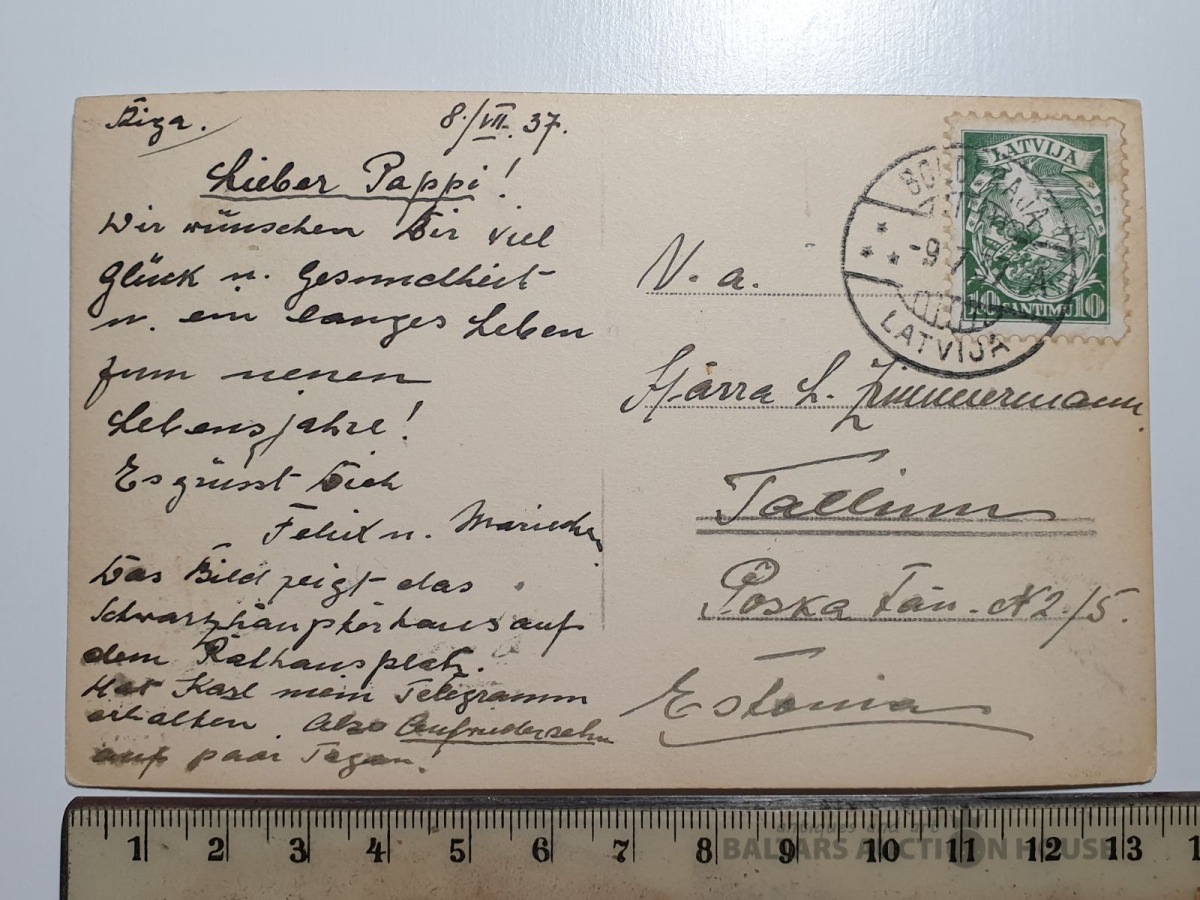 Riga.
8./VII. 37.
Lieber Pappi!
Wir wünschen Dir viel
Glück u. Gesundheit
u. ein langes Leben
zum neuen
Lebensjahre!
Es grüsst Dich
Felix u. Mariechen
Das Bild zeigt das
Schwarzhäupterhaus auf
dem Rathausplatz.
Hat Karl mein Telegramm
erhalten Also Aufwiedersehn
auf paar Tagen!
LATVIJA
10 SANTIMU 10
BOLDERAJA
-9.7. A
LATVIJA
V. a.
Härra L. Zimmermann.
Tallinn
Poska Tän. N2/5.
Estonia
1 2 3 4 5 6 7 8 9 10 11 12 13 1
antiques and art
BALZARS AUCTION HOUSE